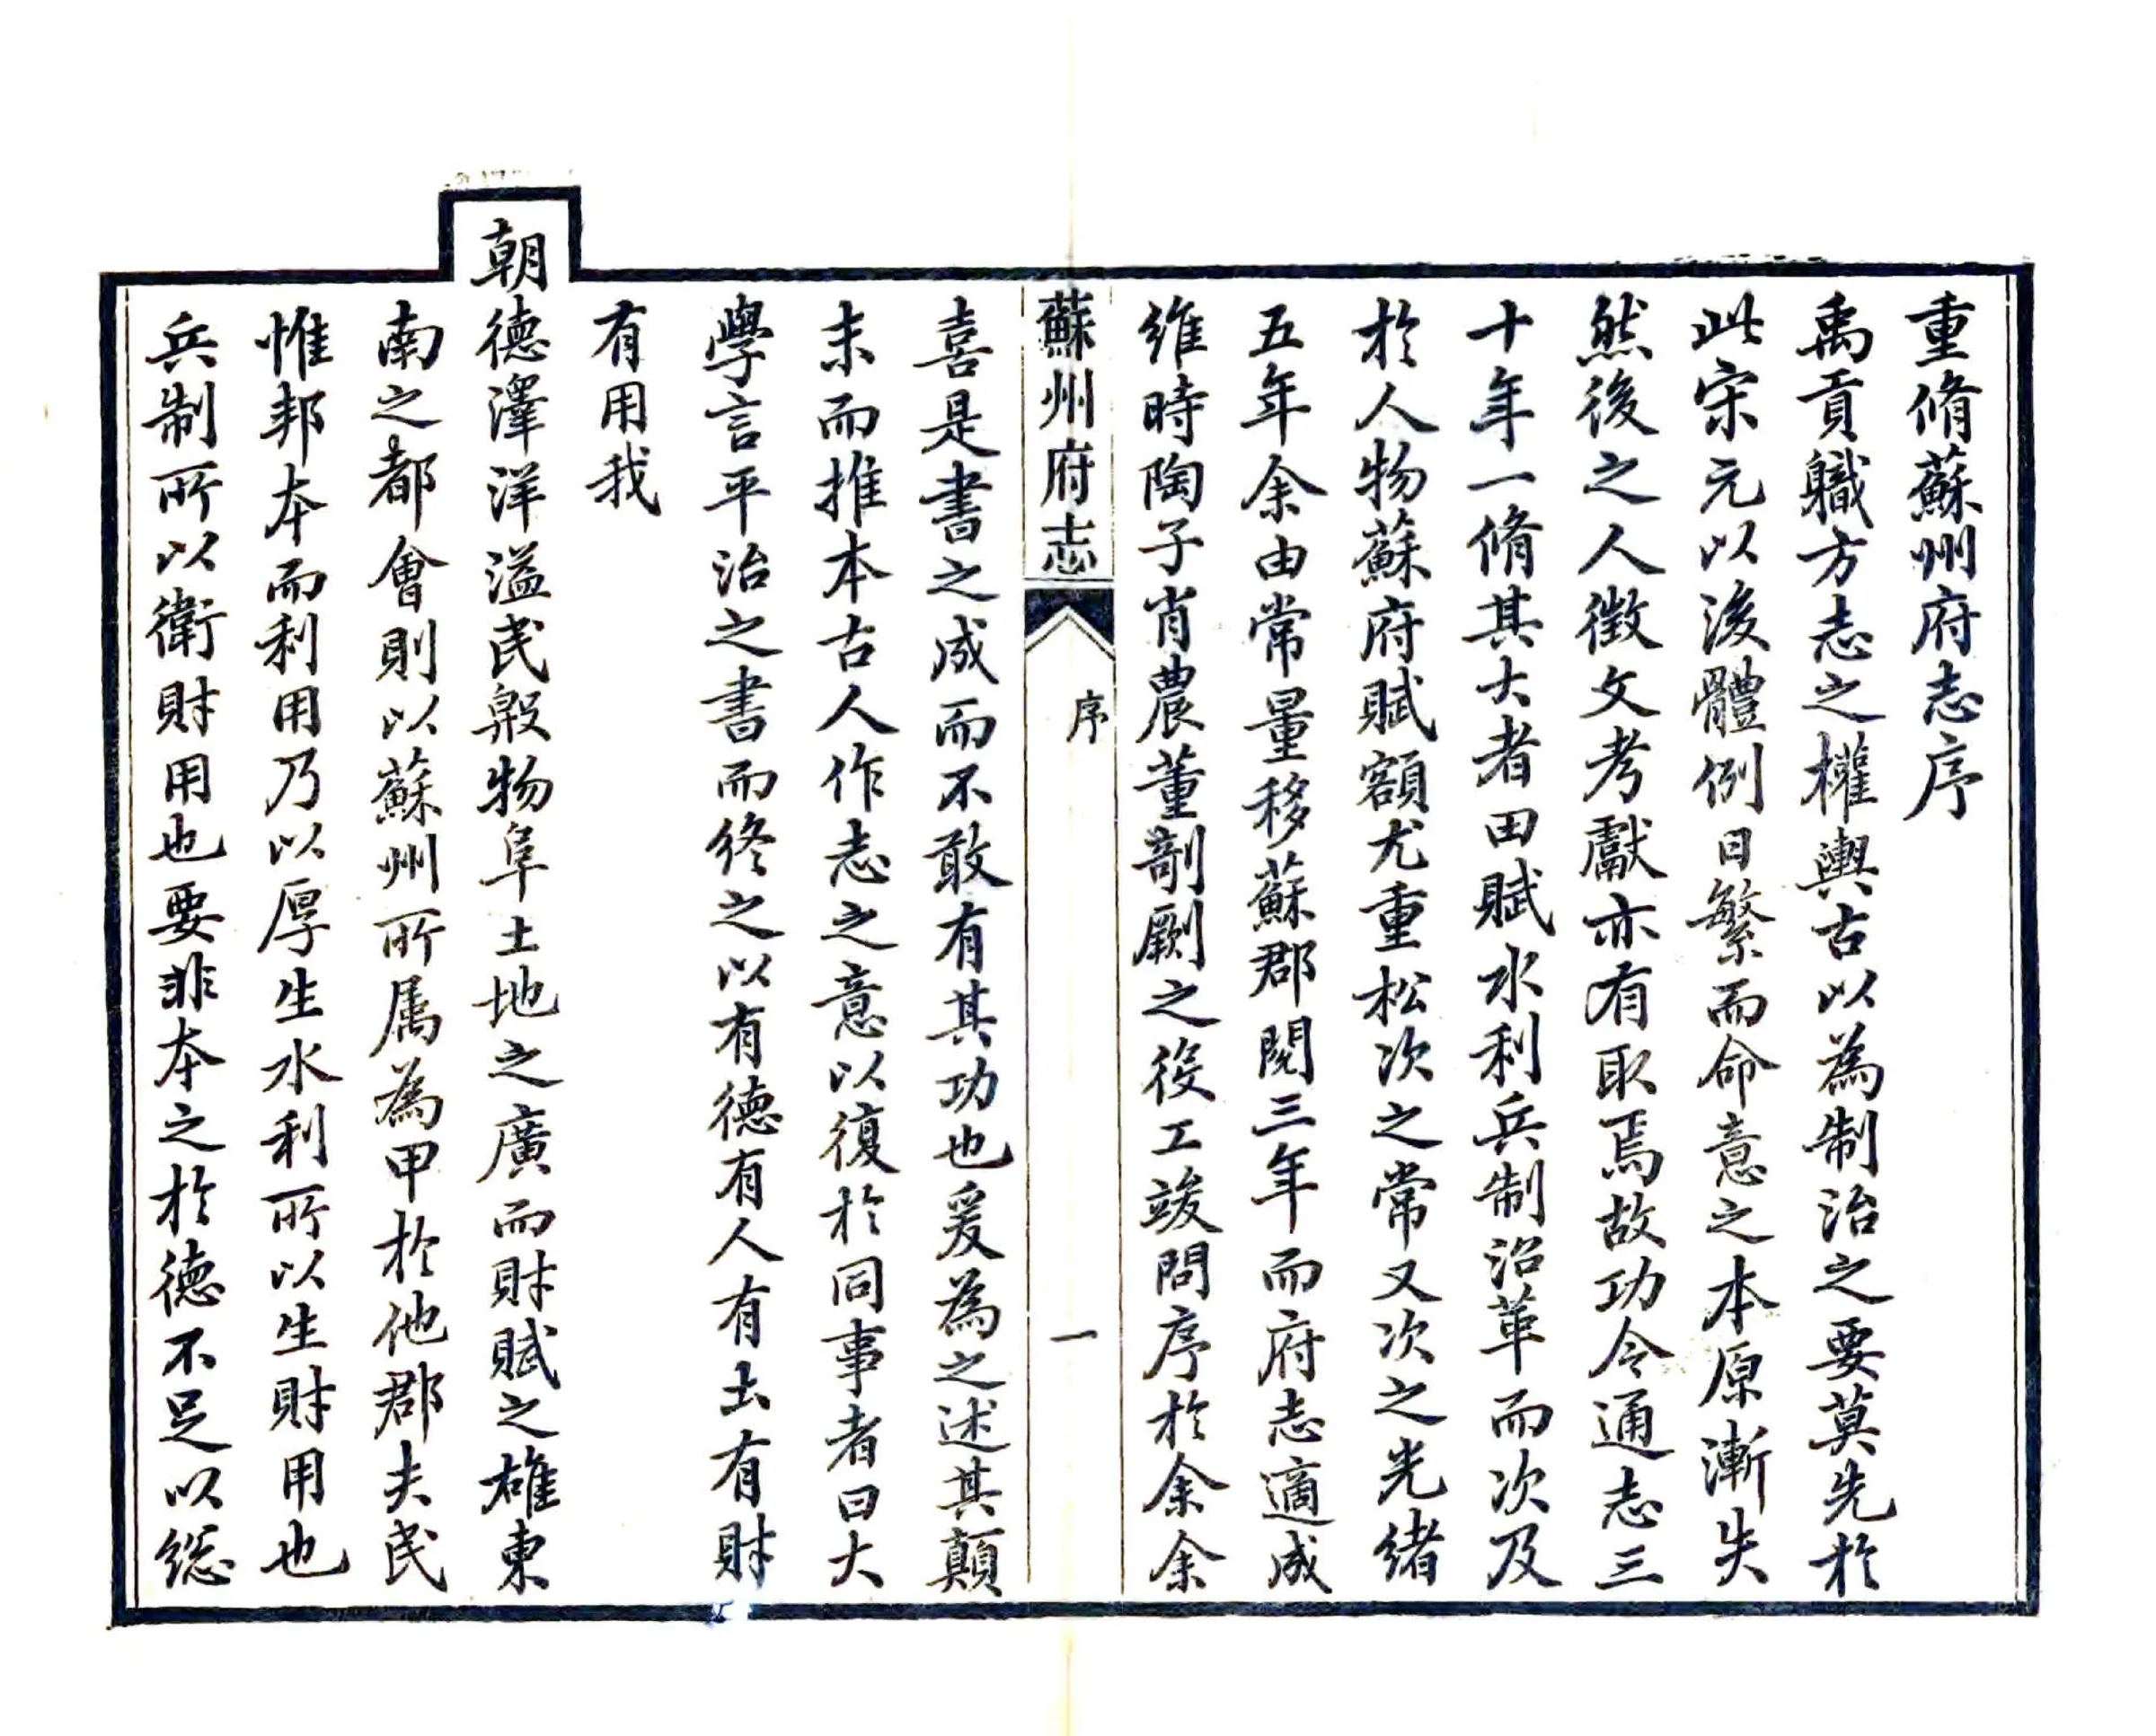 重脩蘇州府志序
禹貢職方志之權輿古以為制治之要莫先於
此宋元以後體例日繁而命意之本原漸失
然後之人徵文考獻亦有取焉故功令通志三
十年一脩其大者田賦水利兵制沿革而次及
於人物蘇府賦額尤重松次之常又次之光緒
五年余由常量移蘇郡閱三年而府志適成
維時陶子肖農董剞劂之役工竣問序於余余
蘇州府志
序
一
喜是書之成而不敢有其功也爰為之述其顛
末而推本古人作志之意以復於同事者曰大
學言平治之書而終之以有德有人有土有財
有用我
朝德澤洋溢民殷物阜土地之廣而財賦之雄東
南之都會則以蘇州所屬為甲於他郡夫民
惟邦本而利用乃以厚生水利所以生財用也
兵制所以衛財用也要非本之於德不足以總